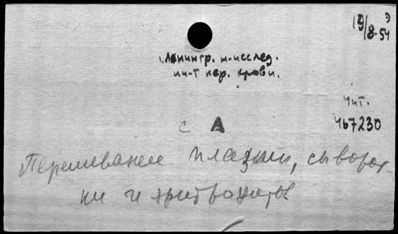 19/8-54 э
Ленингр. н-исслед.
ин-т пер. крови.
Чит.
467230
с А
Переливание плазмы, сыворот-
ки и эритроцитов